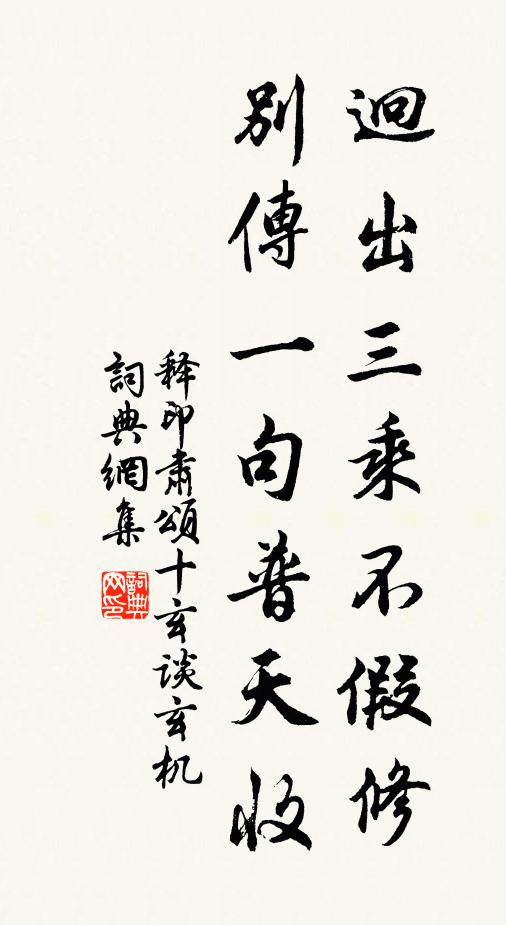 迥出三乘不假修
別傳一句普天收
释印肅頌十玄谈玄机
詞典網集
詞典
网印